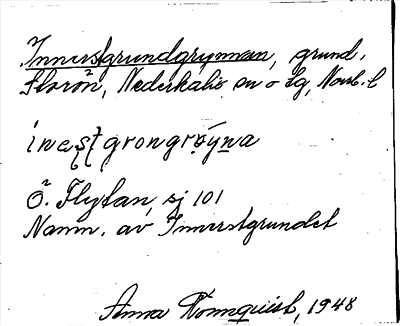 Innerstgrundgrynnan, grund,
Florön, Nederkalix sn o lg, Norrb. l
inəṣt̨grongrøýṉa
Ö. Flytan, sj 101
Namn. av Innerstgrundet
Anna Rönnquist, 1948